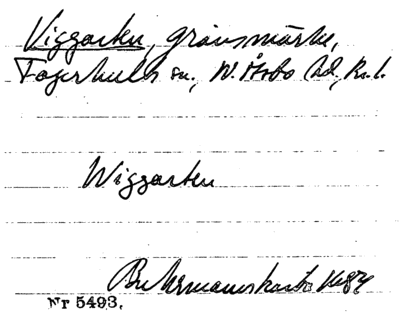 Viggarten, gränsmärke,
Fagerhults sn., N. Åsbo hd, Kr. l.
Wiggarten
Buhrmanskarta 1684
Nr 5493.